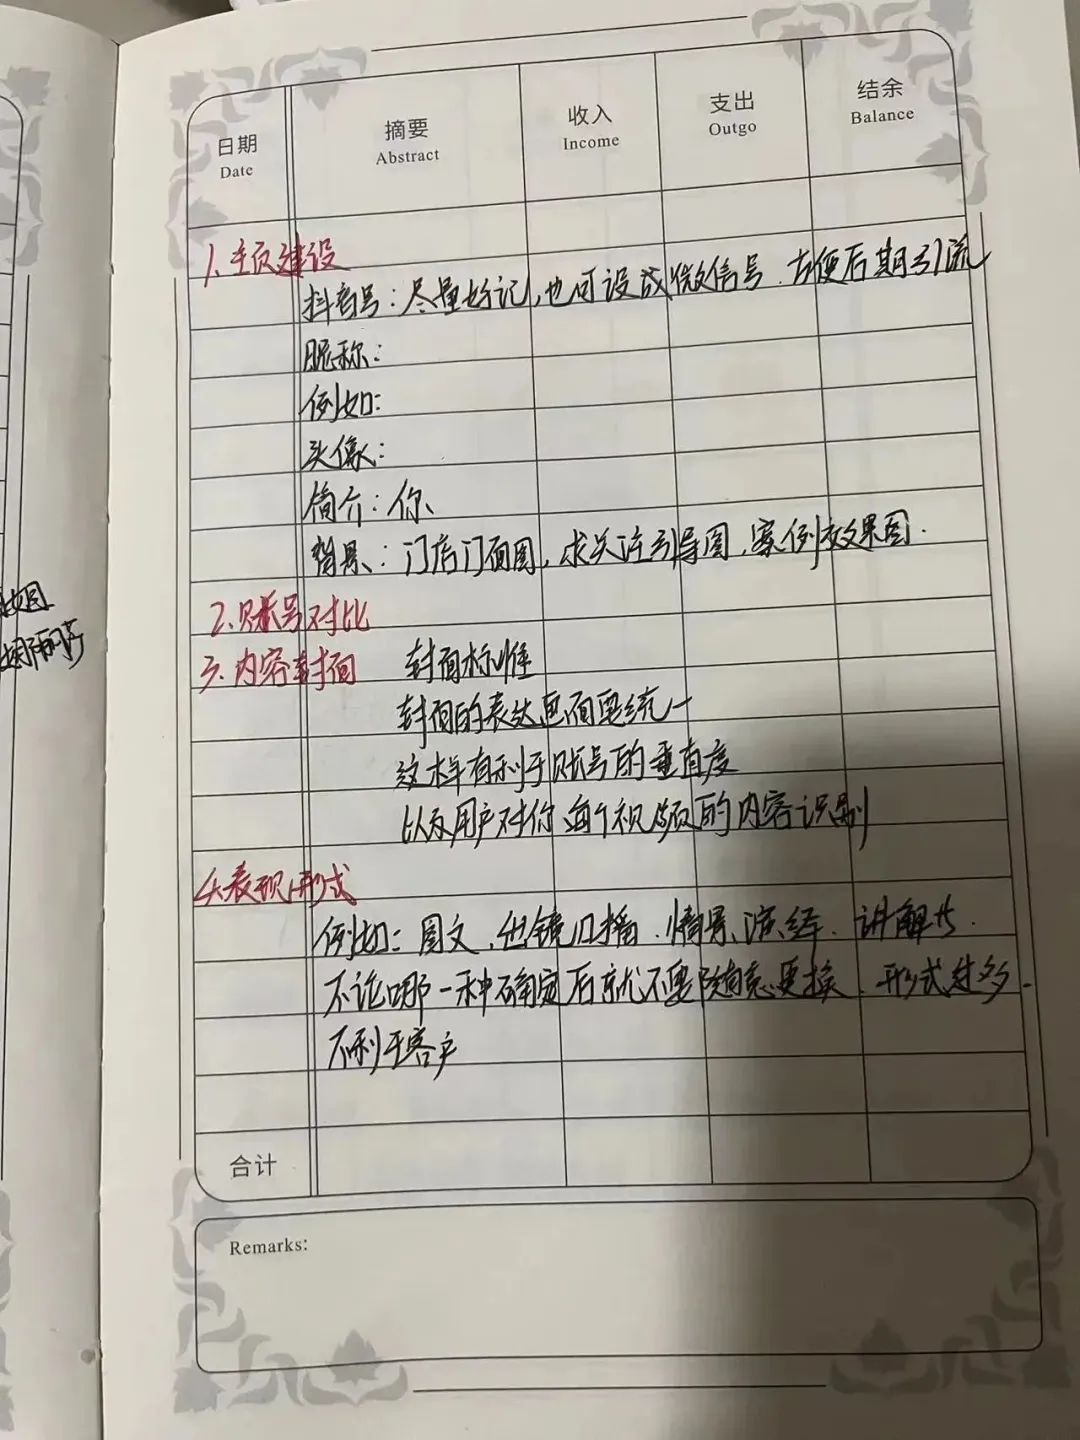 日期 摘要 收入 支出 结余
Date Abstract Income Outgo Balance
1、主页建设
抖音号：尽量好记，也可设成微信号、方便后期引流
昵称：
例如：
头像：
简介：你、
背景：门店门面图，求关注引导图，案例效果图.
2.账号对比
3.内容封面 封面标准
封面的表达画面要统一
这样有利于账号的垂直度
以及用户对你每个视频的内容识别
4.表现形式
例如：图文、出镜口播、情景演绎、讲解、
不论哪一种确定后就不要随意更换、形式过多、
不利于客户
合计
Remarks: